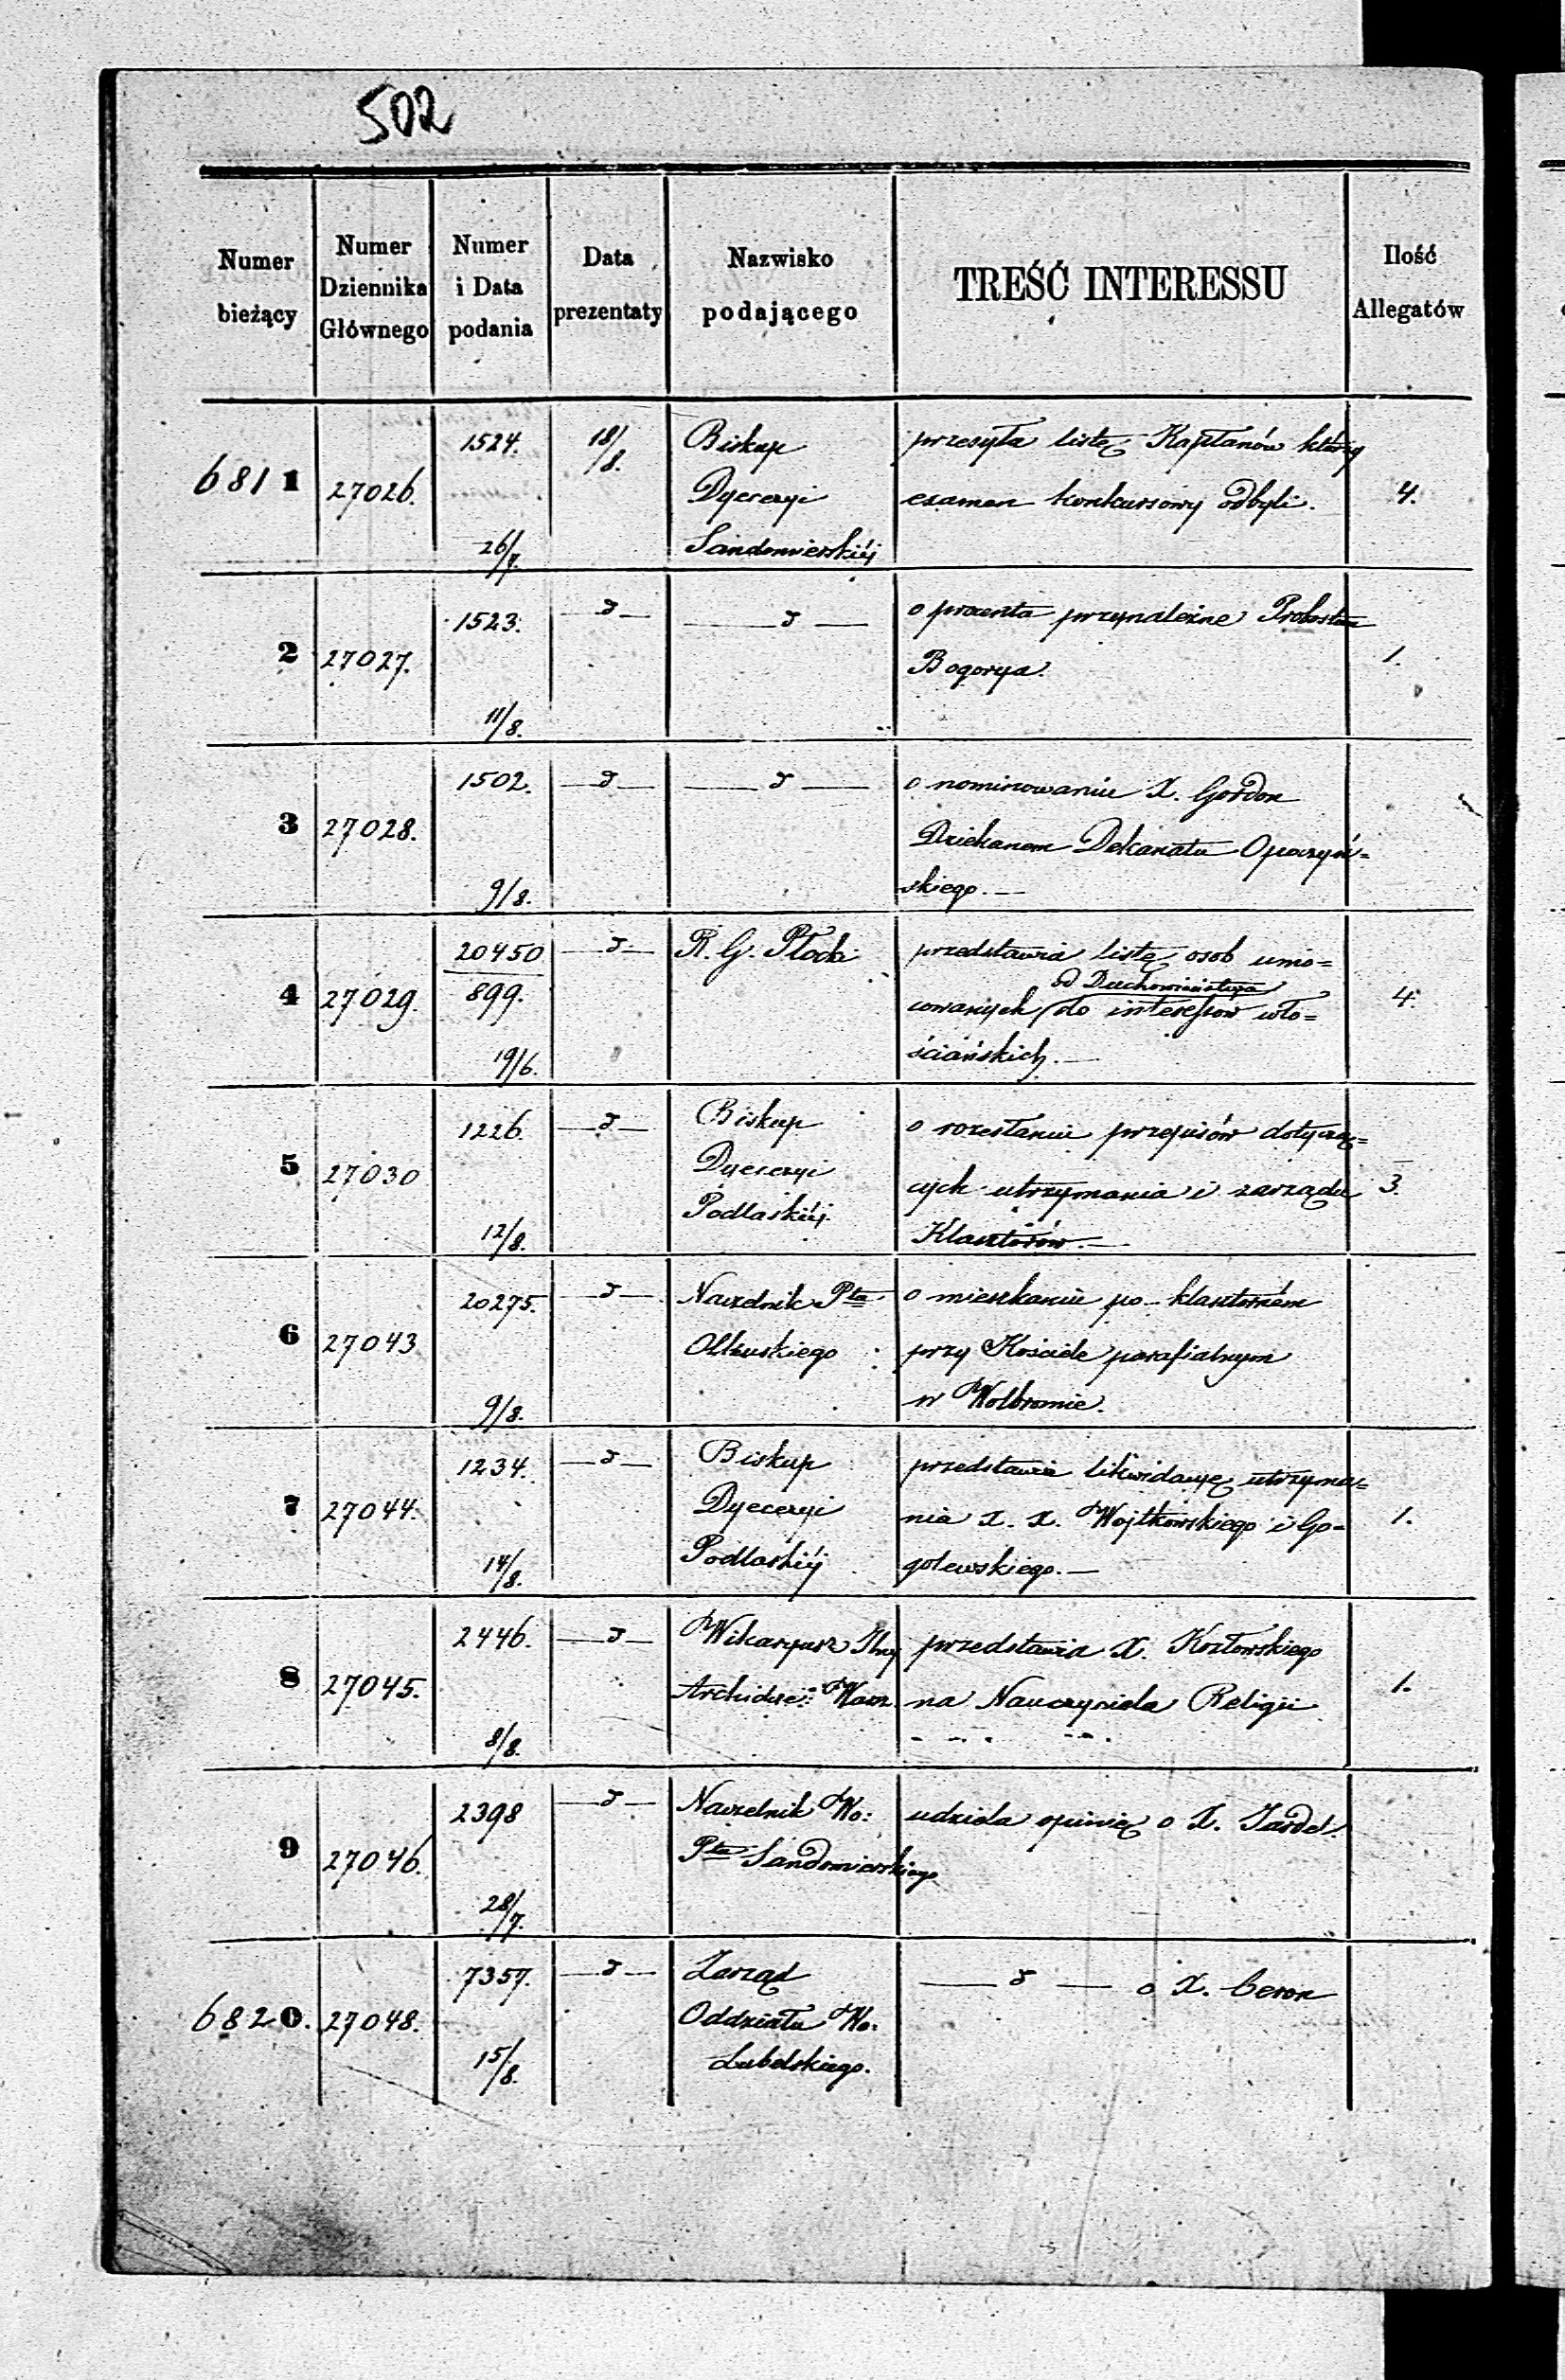 502
Numer bieżący | Numer Dziennika Głównego | Numer i Data podania | Data prezentaty | Nazwisko podającego | TREŚĆ INTERESSU | Ilość Allegatów
6811 | 27026. | 1524. 26/7. | 18/8. | Biskup | przesyła listę Kapłanów którzy | 4.
Dyecezyi | examen konkursowy odbyli.
Sandomierskiéj
2 | 27027. | 1523. 11/8. | —d— | —d— | o procenta przynależne Probostwa | 1.
Bogorya.
3 | 27028. | 1502. 9/8. | —d— | —d— | o nominowanie X. Gordon
Dziekanem Dekanatu Opoczyń=
skiego.—
4 | 27029. | 20450 / 899. 19/6. | —d— | R. G. Płocki | przedstawia listę osob umo= | 4.
od Duchowieństwa
cowanych do interessow wło=
ściańskich.—
5 | 27030 | 1226. 12/8. | —d— | Biskup | o rozesłanie przepisów dotyczą= | 3.
Dyecezyi | cych utrzymania i zarządu
Podlaskiéj. | Klasztorów.—
6 | 27043 | 20275. 9/8. | —d— | Naczelnik Pta | o mieszkaniu po-klasztorném
Olkuskiego | przy Kościele parafialnym
w Wolbromie.
7 | 27044. | 1234. 14/8. | —d— | Biskup | przedstawia likwidacyę utrzyma= | 1.
Dyecezyi | nia X. X. Wojtkowskiego i Go=
Podlaskiéj | golewskiego.—
8 | 27045. | 2446. 8/8. | —d— | Wikaryusz | przedstawia X. Kozłowskiego | 1.
Archidie: Warsz. | na Nauczyciela Religii
9 | 27046. | 2398 28/7. | —d— | Naczelnik Wo: | udziela opinię o X.
Pta Sandomierskiego
6820. | 27048. | 7357. 15/8. | —d— | Zarząd | —d— o X. Ceron
Oddziału Wo.
Lubelskiego.